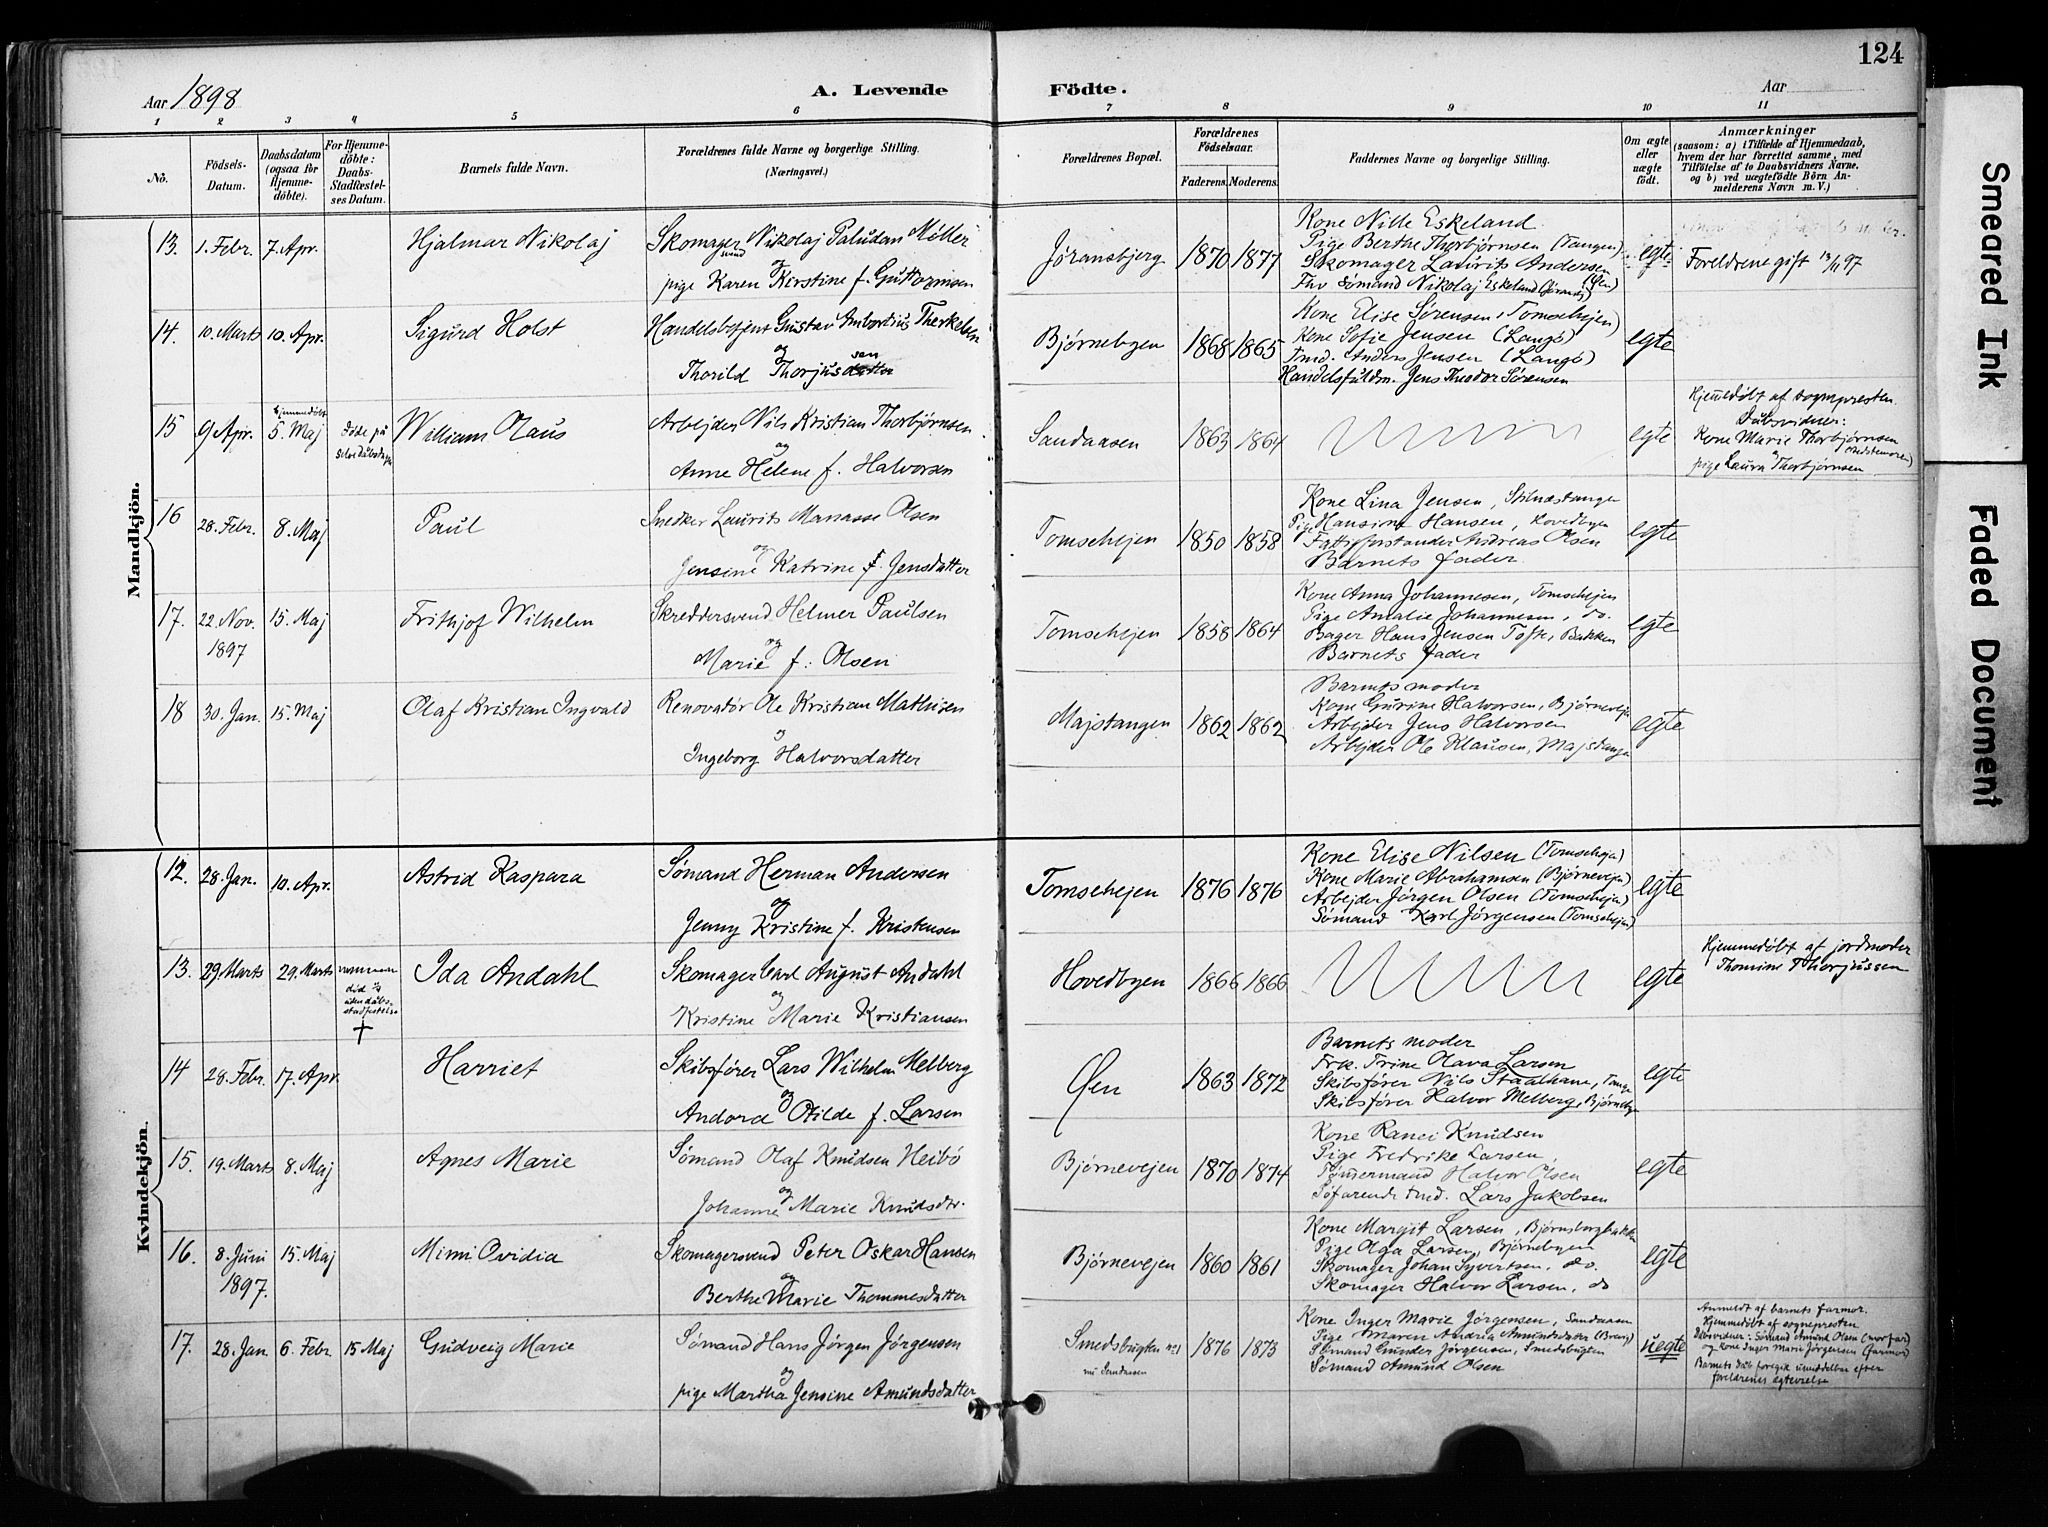 124
Aar 1898 A. Levende Födte. Aar
1 2 3 4 5 6 7 8 9 10 11
No. Födsels-Datum. Daabsdatum (ogsaa for Hjemmedöbte). For Hjemmedöbte: Daabs-Stadfæstelses Datum. Barnets fulde Navn. Forældrenes fulde Navne og borgerlige Stilling. (Næringsvei.) Forældrenes Bopæl. Forældrenes Födselsaar. Faderens. Moderens. Faddernes Navne og borgerlige Stilling. Om ægte eller uægte födt. Anmærkninger (saasom: a) i Tilfælde af Hjemmedaab, hvem der har forrettet samme, med Tilföielse af to Daabsvidners Navne. og b) ved uægtefödte Börn Anmelderens Navn m. V.)
Mandkjön.
13. 1. Febr. 7. Apr. Hjalmar Nikolaj Skomagersvend Nikolaj Paludan Möller
og
pige Karen Kirstine f. Guttormsen
Jøransbjerg 1870 1877
Kone Nille Eskeland
Pige Berthe Thorbjørnsen (Tangen)
Skomager Laurits Andersen (Øen)
Fhv Sømand Nikolaj Eskeland
egte Foreldrene gift 13/11 97
14. 10. Marts 10. Apr. Sigurd Holst Handelsbetjent Gustav Ambortius Therkelsen
og
Thorild Thorjussen
Bjørnebyen 1868 1865
Kone Elise Sørensen, Tomsehejen)
Kone Sofie Jensen (Langö)
Tmd. Anders Jensen (Langö)
Handelsfuldm. Jens Theodor Sørensen
egte
15 9 Apr. hjemmedøbt 5. Maj døde på selve dåbsdagen William Olaus Arbejder Nils Kristian Thorbjørnsen
og
Anne Helene f. Halvorsen
Sandaasen 1863 1864 egte
Hjemmedøbt af sognepresten
Dåbsvidner:
Kone Marie Thorbjørnsen
(bedstemoren)
pige Laura Thorbjørnsen
16 28. Febr. 8. Maj Paul Snedker Laurits Manasse Olsen
og
Jensine Katrine f. Jensdatter
Tomsehejen 1850 1858
Kone Lina Jensen, Stilnæstangen
Pige Hansine Hansen, Hovedbyen
Fattigforstander Andreas Olsen
Barnets fader.
egte
17. 22. Nov. 1897 15. Maj Frithjof Wilhelm Skreddersvend Helmer Paulsen
og
Marie f. Olsen
Tomsehejen 1858 1864
Kone Anna Johannesen, Tomsehejen
Pige Amalie Johannesen, do.
Bager Hans Jensen Toft, Bakken
Barnets fader
egte
18 30. Jan. 15. Maj Olaf Kristian Ingvald Renovatør Ole Kristian Mathisen
og
Ingeborg Halvorsdatter
Majstangen 1862 1862
Barnets moder
Kone Gurine Halvorsen, Bjørnevejen
Arbejder Jens Halvorsen
Arbejder Ole Klausen, Majstangen
egte
Kvindekjön.
12. 28. Jan. 10. Apr. Astrid Kaspara Sømand Herman Andersen
og
Jenny Kristine f. Kristensen
Tomsehejen 1876 1876
Kone Elise Nilsen (Tomsehejen)
Kone Marie Abrahamsen (Bjørnevejen)
Arbejder Jörgen Olsen (Tomsehejen)
Sømand Karl Jörgensen (Tomsehejen)
egte
13. 29. Marts 29. Marts Ida Andahl Skomager Carl August Andahl
og
Kristine Marie Kristiansen
Hovedbyen 1866 1866 egte
Hjemmedøbt af jordmoder
Thomine Thorjussen
14 28. Febr. 17. Apr. Harriet Skibsfører Lars Wilhelm Melberg
og
Andora Otilde f. Larsen
Øen 1863 1872
Barnets moder
Frk. Trine Olava Larsen
Skibsfører Nils Staalhane, Tangen
Skibsfører Halvor Melberg, Bjørnebyen
egte
15. 19. Marts 8. Maj Agnes Marie Sømand Olaf Knudsen Heibö
og
Johanne Marie Knudsdtr.
Bjørnevejen 1870 1874
Kone Ranei Knudsen
Pige Fredrike Larsen,
Tømmermand Halvor Olsen
Søfarende tmd. Lars Jakobsen
egte
16. 8. Juni 1897. 15. Maj Mimi Ovidia Skomagersvend Peter Oskar Hansen
og
Berthe Marie Thommesdatter
Bjørnevejen 1860 1861
Kone Margit Larsen, Bjørnsborgbakken
Pige Olga Larsen, Bjørnebyen
Skomager Johan Syvertsen, do.
Skomager Halvor Larsen, do
egte
17. 28. Jan. 6. Febr. 15 Maj Gudveig Marie Sømand Hans Jörgen Jörgensen
og
pige Martha Jensine Amundsdatter
Smedsbugten
nu Sandaasen
1876 1873
Kone Inger Marie Jörgensen, Sandaasen
Pige Maren Andrea Amundsdatter
Sømand Gunder Jörgensen, Smedsbugten
Sømand Amund Olsen
uegte
Anmeldt af barnets farmor.
Hjemmedøbt af sognepresten
Dåbsvidner: Sømand Amund Olsen (morfar)
og Kone Inger Marie Jörgensen (farmor)
Barnets dåb foregik umiddelbar efter
foreldrenes egtevielse
Smeared Ink
Faded Document